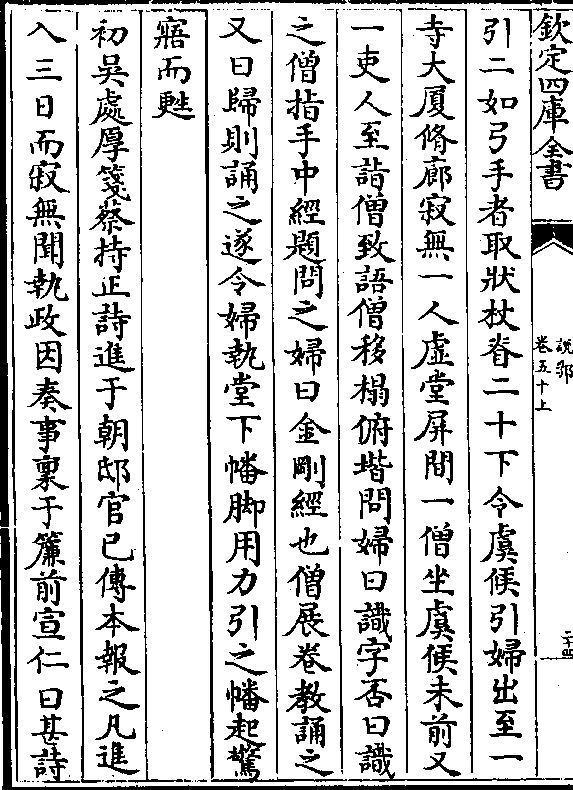 欽定四庫全書
說郛
卷五十上
二十四
引二如弓手者取狀杖脊二十下令虞𠋫引婦出至一
寺大厦脩廊寂無一人虚堂屏間一僧坐虞𠋫未前又
一吏人至詣僧致語僧移榻俯堦問婦曰識字否曰識
之僧指手中經題問之婦曰金剛經也僧展卷教誦之
又曰歸則誦之遂令婦執堂下幡脚用力引之幡起驚
寤而甦
初吳處厚箋蔡持正詩進于朝邸官已傳本報之凡進
入三日而寂無聞執政因奏事稟于簾前宣仁曰甚詩